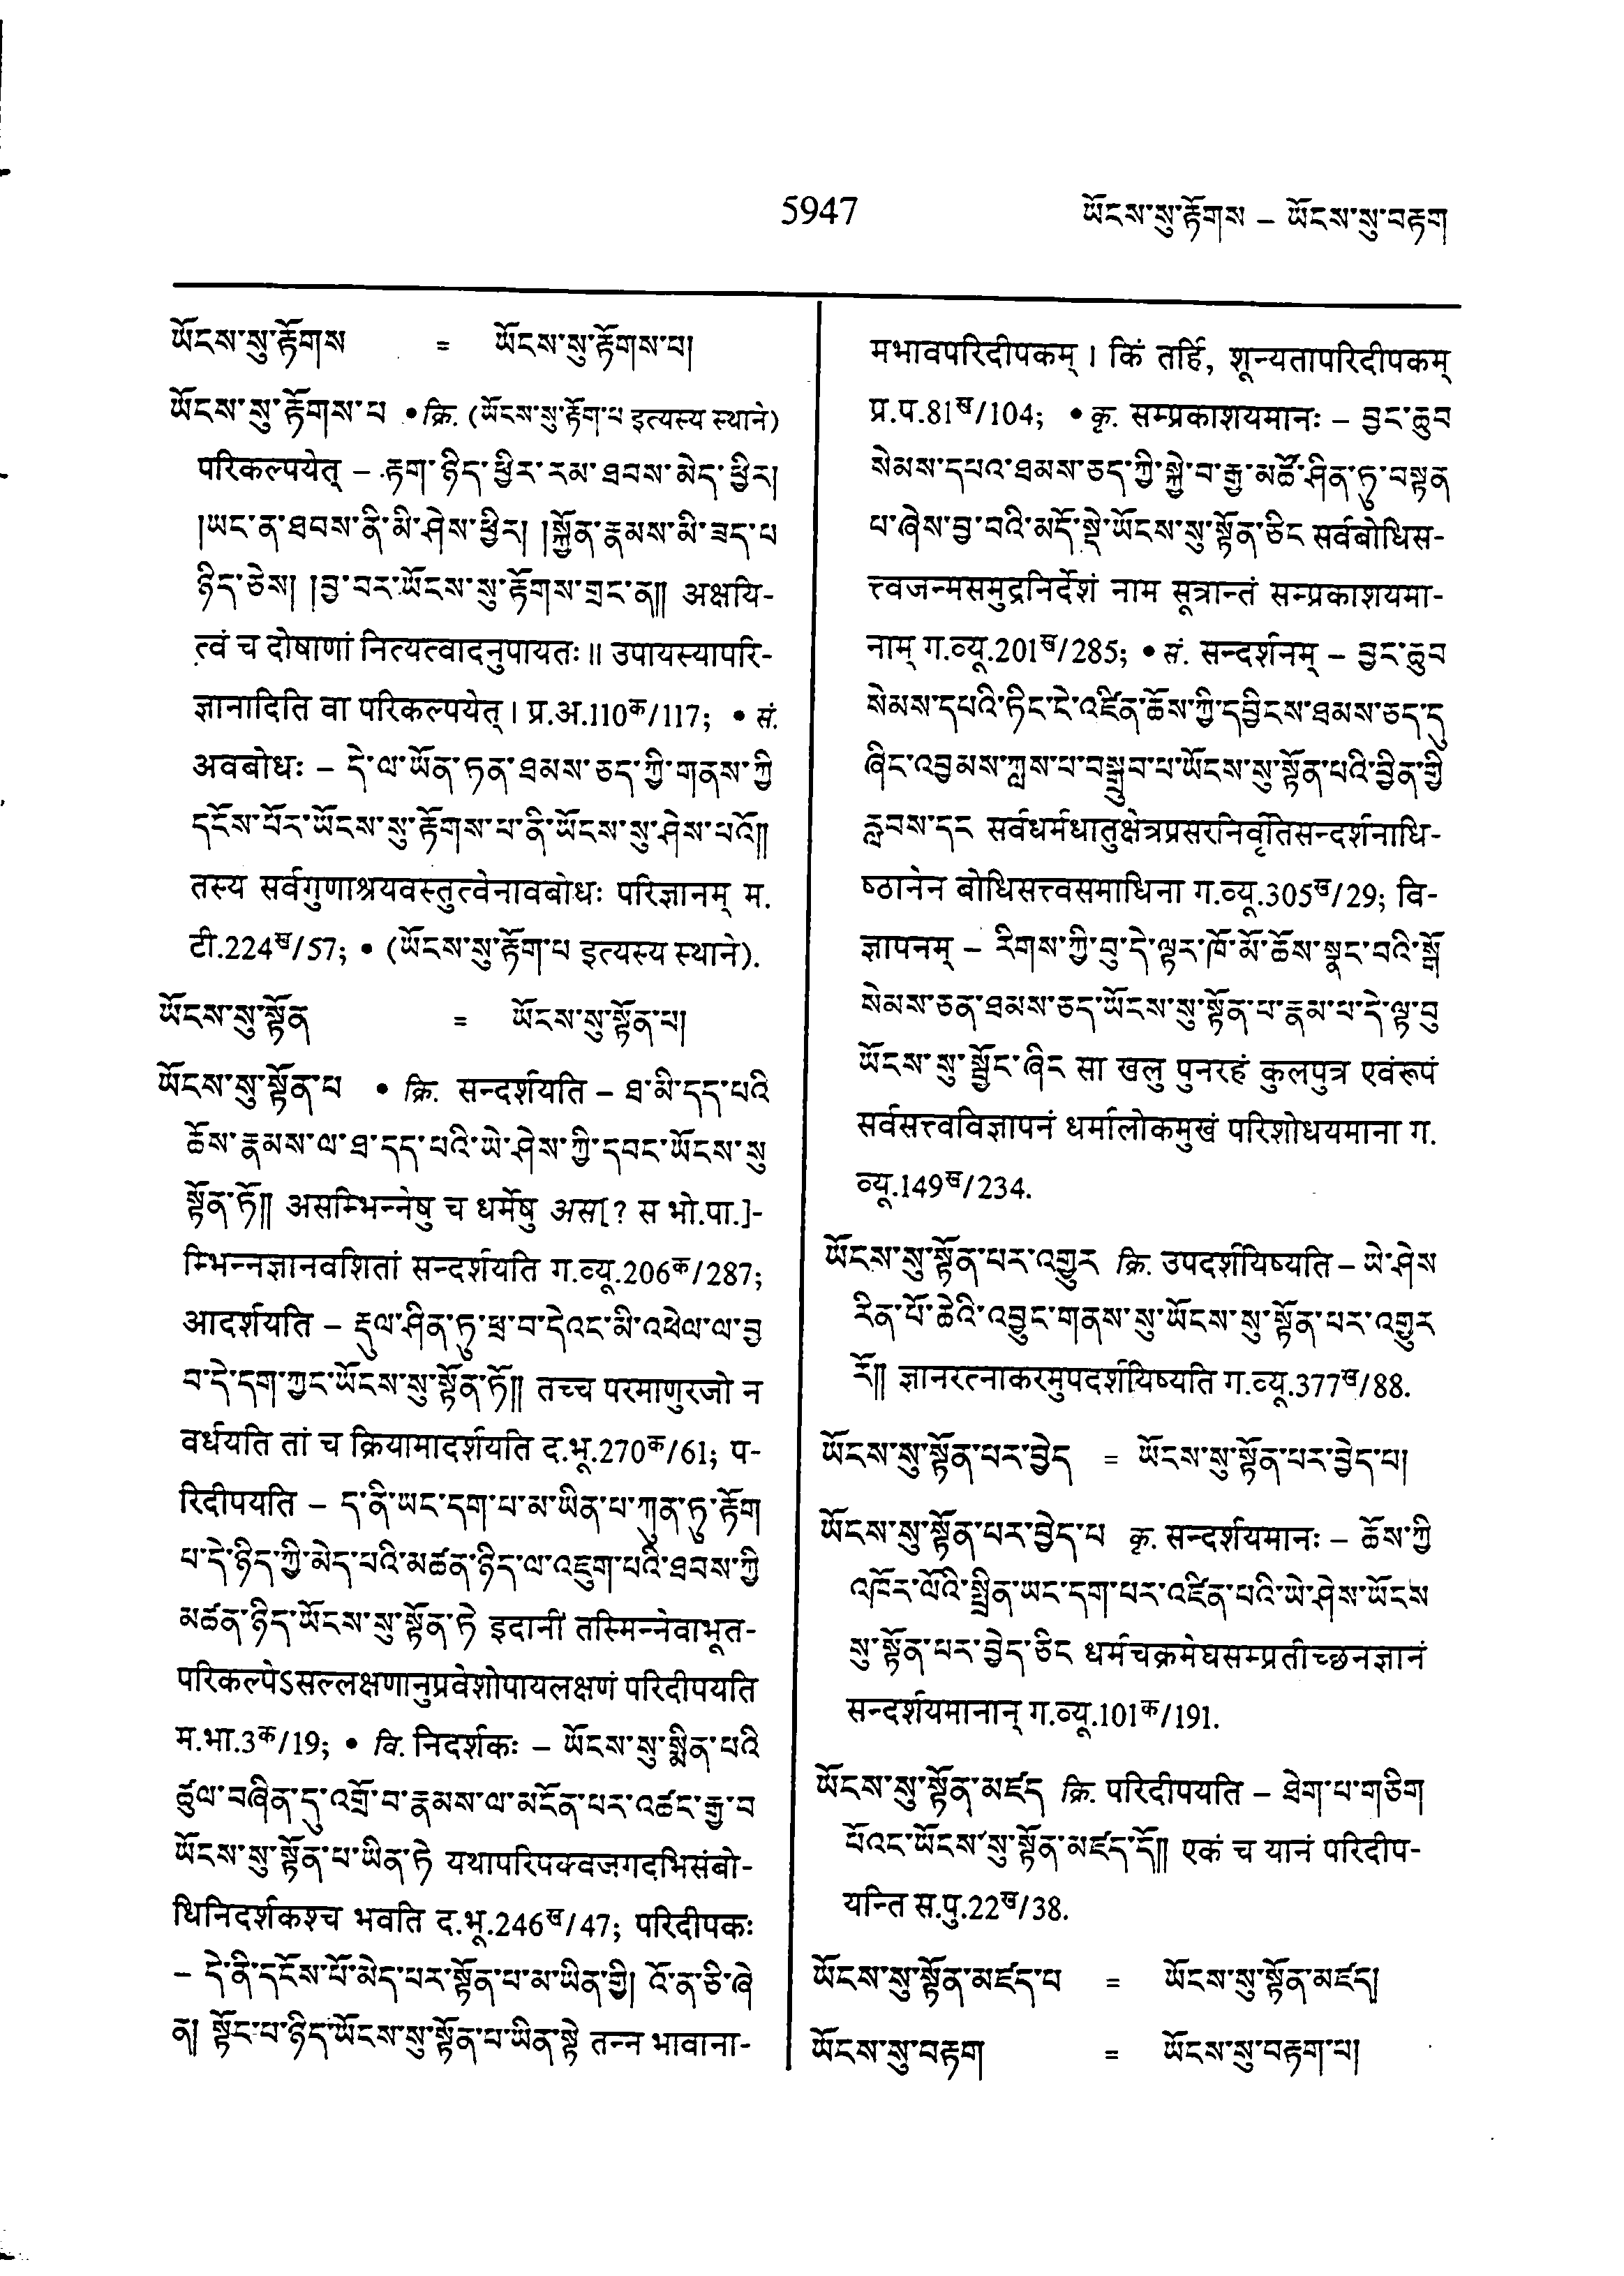 5947
ཡོངས་སུ་རྟོགས – ཡོངས་སུ་བརྟག
ཡོངས་སུ་རྟོགས = ཡོངས་སུ་རྟོགས་པ།
ཡོངས་སུ་རྟོགས་པ • क्रि. (ཡོངས་སུ་རྟོག་པ इत्यस्य स्थाने)
परिकल्पयेत् – རྟག་ཉིད་ཕྱིར་རམ་ཐབས་མེད་ཕྱིར།
།ཡང་ན་ཐབས་ནི་མི་ཤེས་ཕྱིར། །སྐྱོན་རྣམས་མི་ཟད་པ
ཉིད་ཅེས། །བྱ་བར་ཡོངས་སུ་རྟོགས་གྲང་ན༎ अक्षयि-
त्वं च दोषाणां नित्यत्वादनुपायतः॥ उपायस्यापरि-
ज्ञानादिति वा परिकल्पयेत्। प्र.अ.110क/117; • सं.
अवबोधः – དེ་ལ་ཡོན་ཏན་ཐམས་ཅད་ཀྱི་གནས་ཀྱི
དངོས་པོར་ཡོངས་སུ་རྟོགས་པ་ནི་ཡོངས་སུ་ཤེས་པའོ༎
तस्य सर्वगुणाश्रयवस्तुत्वेनावबोधः परिज्ञानम् म.
टी.224ख/57; • (ཡོངས་སུ་རྟོག་པ इत्यस्य स्थाने).
ཡོངས་སུ་སྟོན = ཡོངས་སུ་སྟོན་པ།
ཡོངས་སུ་སྟོན་པ • क्रि. सन्दर्शयति – ཐ་མི་དད་པའི
ཆོས་རྣམས་ལ་ཐ་དད་པའི་ཡེ་ཤེས་ཀྱི་དབང་ཡོངས་སུ
སྟོན་ཏོ༎ असम्भिन्नेषु च धर्मेषु अस[? स भो.पा.]-
म्भिन्नज्ञानवशितां सन्दर्शयति ग.व्यू.206क/287;
आदर्शयति – རྡུལ་ཤིན་ཏུ་ཕྲ་བ་དེའང་མི་འཕེལ་ལ་བྱ
བ་དེ་དག་ཀྱང་ཡོངས་སུ་སྟོན་ཏོ༎ तच्च परमाणुरजो न
वर्धयति तां च क्रियामादर्शयति द.भू.270क/61; प-
रिदीपयति – ད་ནི་ཡང་དག་པ་མ་ཡིན་པ་ཀུན་ཏུ་རྟོག
པ་དེ་ཉིད་ཀྱི་མེད་པའི་མཚན་ཉིད་ལ་འཇུག་པའི་ཐབས་ཀྱི
མཚན་ཉིད་ཡོངས་སུ་སྟོན་ཏེ इदानीं तस्मिन्नेवाभूत-
परिकल्पेऽसल्लक्षणानुप्रवेशोपायलक्षणं परिदीपयति
म.भा.3क/19; • वि. निदर्शकः – ཡོངས་སུ་སྨིན་པའི
ཚུལ་བཞིན་དུ་འགྲོ་བ་རྣམས་ལ་མངོན་པར་འཚང་རྒྱ་བ
ཡོངས་སུ་སྟོན་པ་ཡིན་ཏེ यथापरिपक्वजगदभिसंबो-
धिनिदर्शकश्च भवति द.भू.246ख/47; परिदीपकः
– དེ་ནི་དངོས་པོ་མེད་པར་སྟོན་པ་མ་ཡིན་གྱི། འོ་ན་ཅི་ཞེ
ན། སྟོང་པ་ཉིད་ཡོངས་སུ་སྟོན་པ་ཡིན་སྟེ तन्न भावाना-
मभावपरिदीपकम्। किं तर्हि, शून्यतापरिदीपकम्
प्र.प.81ख/104; • कृ. सम्प्रकाशयमानः – བྱང་ཆུབ
སེམས་དཔའ་ཐམས་ཅད་ཀྱི་སྐྱེ་བ་རྒྱ་མཚོ་ཤིན་ཏུ་བསྟན
པ་ཞེས་བྱ་བའི་མདོ་སྡེ་ཡོངས་སུ་སྟོན་ཅིང सर्वबोधिस-
त्त्वजन्मसमुद्रनिर्देशं नाम सूत्रान्तं सम्प्रकाशयमा-
नाम् ग.व्यू.201ख/285; • सं. सन्दर्शनम् – བྱང་ཆུབ
སེམས་དཔའི་ཏིང་ངེ་འཛིན་ཆོས་ཀྱི་དབྱིངས་ཐམས་ཅད་དུ
ཞིང་འབྱམས་ཀླས་པ་བསྒྲུབ་པ་ཡོངས་སུ་སྟོན་པའི་བྱིན་གྱི
རླབས་དང सर्वधर्मधातुक्षेत्रप्रसरनिर्वृतिसन्दर्शनाधि-
ष्ठानेन बोधिसत्त्वसमाधिना ग.व्यू.305ख/29; वि-
ज्ञापनम् – རིགས་ཀྱི་བུ་དེ་ལྟར་ཁོ་མོ་ཆོས་སྣང་བའི་སྒོ
སེམས་ཅན་ཐམས་ཅད་ཡོངས་སུ་སྟོན་པ་རྣམ་པ་དེ་ལྟ་བུ
ཡོངས་སུ་སྦྱོང་ཞིང सा खलु पुनरहं कुलपुत्र एवंरूपं
सर्वसत्त्वविज्ञापनं धर्मालोकमुखं परिशोधयमाना ग.
व्यू.149ख/234.
ཡོངས་སུ་སྟོན་པར་འགྱུར क्रि. उपदर्शयिष्यति – ཡེ་ཤེས
རིན་པོ་ཆེའི་འབྱུང་གནས་སུ་ཡོངས་སུ་སྟོན་པར་འགྱུར
རོ༎ ज्ञानरत्नाकरमुपदर्शयिष्यति ग.व्यू.377ख/88.
ཡོངས་སུ་སྟོན་པར་བྱེད = ཡོངས་སུ་སྟོན་པར་བྱེད་པ།
ཡོངས་སུ་སྟོན་པར་བྱེད་པ कृ. सन्दर्शयमानः – ཆོས་ཀྱི
འཁོར་ལོའི་སྤྲིན་ཡང་དག་པར་འཛིན་པའི་ཡེ་ཤེས་ཡོངས
སུ་སྟོན་པར་བྱེད་ཅིང धर्मचक्रमेघसम्प्रतीच्छनज्ञानं
सन्दर्शयमानान् ग.व्यू.101क/191.
ཡོངས་སུ་སྟོན་མཛད क्रि. परिदीपयति – ཐེག་པ་གཅིག
པོའང་ཡོངས་སུ་སྟོན་མཛད་དོ༎ एकं च यानं परिदीप-
यन्ति स.पु.22ख/38.
ཡོངས་སུ་སྟོན་མཛད་པ = ཡོངས་སུ་སྟོན་མཛད།
ཡོངས་སུ་བརྟག = ཡོངས་སུ་བརྟག་པ།